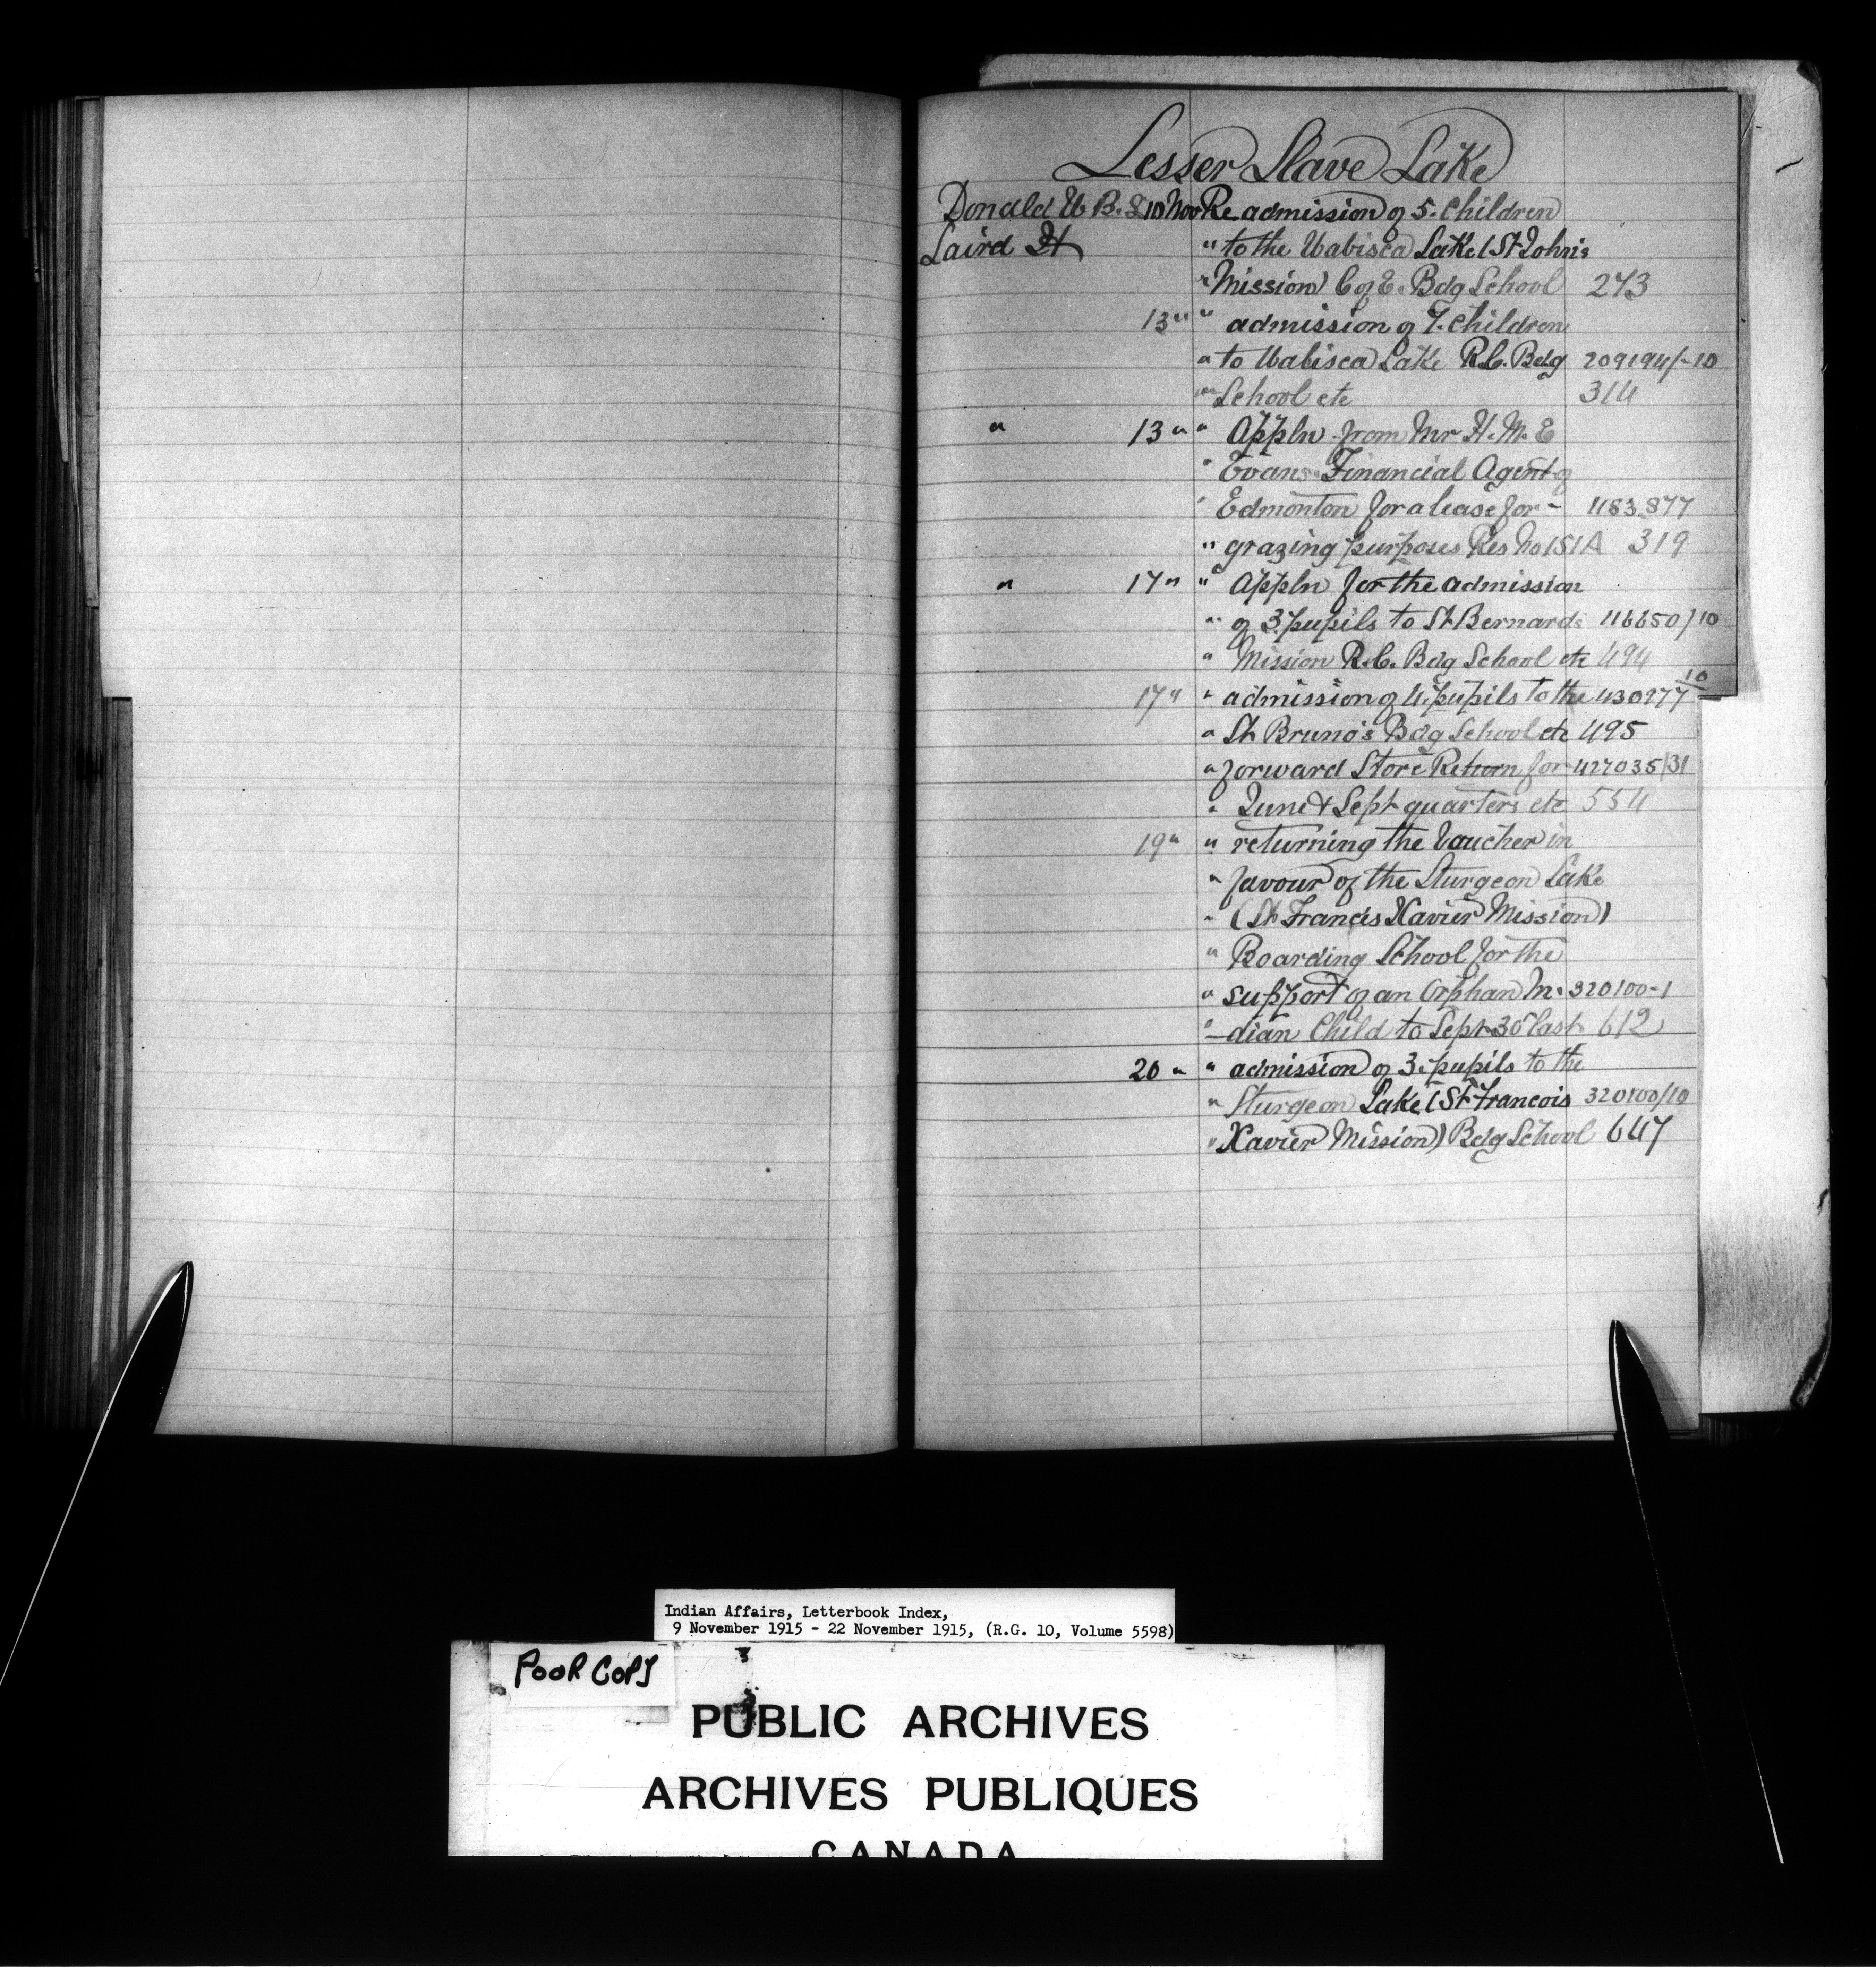 Lesser Slave Lake
Donald W. B. L 10 Nov Re admission of 5. Children
Laird H " to the Wabisca Lake (St John's
" Mission) C of E. Bdg School 273
13 " " admission of 7. Children
" to Wabisca Lake R.C. Bdg 209194/-10
" School etc 314
" 13 " " Appln from Mr H. M. E
" Evans Financial Agent of
" Edmonton for a lease for - 1183.877
" grazing purposes Res No 151A 319
" 17 " " Appln for the admission
" of 3 pupils to St Bernards 116650/10
" Mission R.C. Bdg School etc 494
17 " " admission of 4. pupils to the 430977 10
" St Bruno's Bdg School etc 495
" forward Store Return for 427035/31
" June & Sept quarters etc 554
19 " " returning the Voucher in
" favour of the Sturgeon Lake
" (St Francis Xavier Mission)
" Boarding School for the
" support of an Orphan In- 320100-1
" -dian Child to Sept 30 last 612
20 " " admission of 3. pupils to the
" Sturgeon Lake (St Francois 320100/10
" Xavier Mission) Bdg School 647
Indian Affairs, Letterbook Index,
9 November 1915 - 22 November 1915, (R.G. 10, Volume 5598)
POOR COPY
PUBLIC ARCHIVES
ARCHIVES PUBLIQUES
CANADA